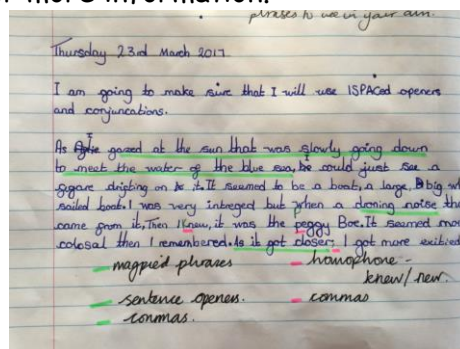 more information.
phrases to use in your own.
Thursday 23rd March 2017
I am going to make sure that I will use ISPACed openers
and conjuncations.
As I gazed at the sun that was slowly going down
to meet the water of the blue sea, could just see a
figare drifting on it. It seemed to be a boat, a large, big
sailed boat. I was very intreged but when a droning noise
came from it, Then I knew, it was the peggy Boe. It seemed
colosal then I remembered. As it got closer, I got more
magpied phrases
homophone -
knew/new.
sentence openers.
commas
commas.